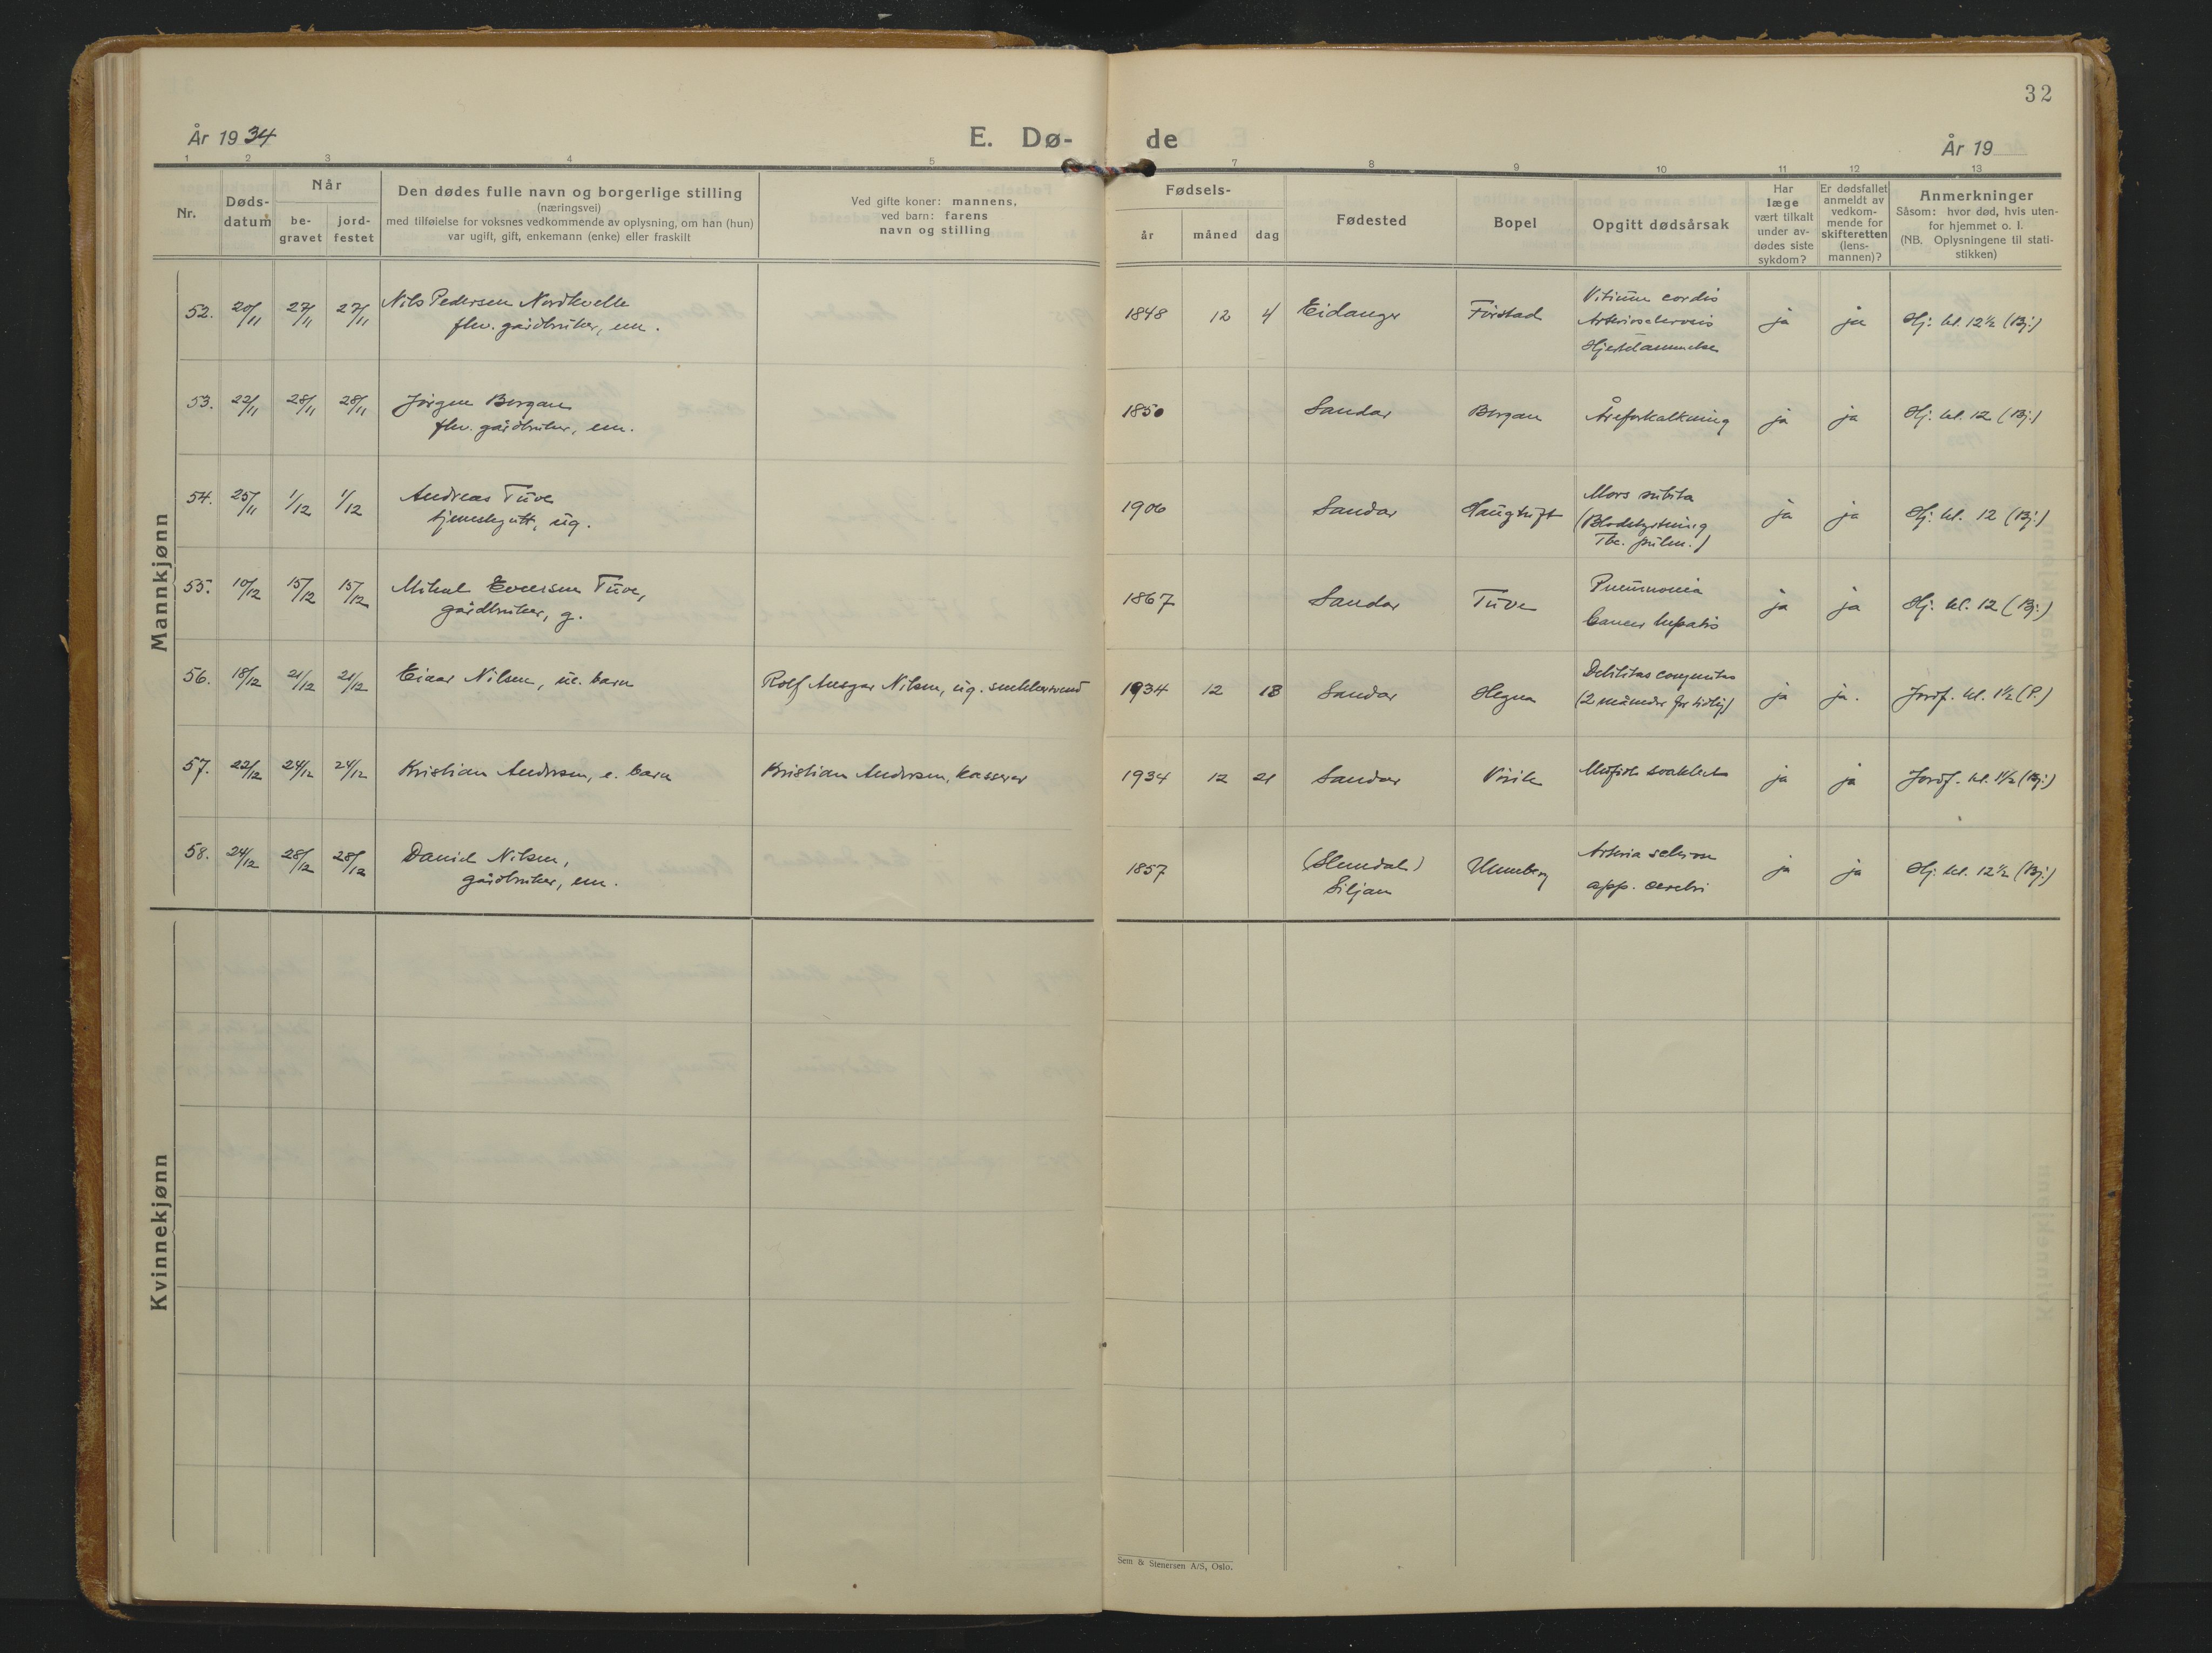 32
År 1934
E. Dø-
de
År 19
1 2 3 4 5 7 8 9 10 11 12 13
Nr.
Døds-
datum
Når
be-
gravet
jord-
festet
Den dødes fulle navn og borgerlige stilling
(næringsvei)
med tilføielse for voksnes vedkommende av oplysning, om han (hun)
var ugift, gift, enkemann (enke) eller fraskilt
Ved gifte koner: mannens,
ved barn: farens
navn og stilling
Fødsels-
år måned dag
Fødested
Bopel
Opgitt dødsårsak
Har
læge
vært tilkalt
under av-
dødes siste
sykdom?
Er dødsfallet
anmeldt av
vedkom-
mende for
skifteretten
(lens-
mannen)?
Anmerkninger
Såsom: hvor død, hvis uten-
for hjemmet o. l.
(NB. Oplysningene til stati-
stikken)
Mannkjønn
52. 20/11 27/11 27/11 Nils Pedersen Nordkvelle
fhv. gårdbruker, em.
1848 12 4 Eidanger Førstad
Vitium cordis
Arteriosclerosis
Hjertelammelse
ja ja Hj. kl. 12½ (Bj.)
53. 22/11 28/11 28/11 Jørgen Bergan
fhv. gårdbruker, em.
1850 Sandar Bergan Åreforkalkning ja ja Hj. kl. 12 (Bj.)
54. 25/11 1/12 1/12 Andreas Tuve
tjenestegutt, ug.
1906 Sandar Haugtuft
Mors subita
(Blodstyrtning
Tbc. pulm.)
ja ja Hj. kl. 12 (Bj.)
55. 10/12 15/12 15/12 Mikal Evensen Tuve,
gårdbruker, g.
1867 Sandar Tuve
Pneumonia
Cancer hepatis
ja ja Hj. kl. 12 (Bj.)
56. 18/12 21/12 21/12 Einar Nilsen, ue. barn
Rolf Ansgar Nilsen, ug. snekkersvend
1934 12 18 Sandar Hegna
Debilitas congenitas
(2 måneder for tidlig)
ja ja. Jordf. kl. 1½ (P.)
57. 22/12 24/12 24/12 Kristian Andersen, e. barn
Kristian Andersen, kasserer
1934 12 21 Sandar Virik
Medfødt svakhet
ja ja Jordf. kl. 1½ (Bj.)
58. 24/12 28/12 28/12 Daniel Nilsen,
gårdbruker, em.
1857
Siljan
Unneberg
app. cerebri
ja ja Hj. kl. 12½ (Bj.)
Kvinnekjønn
Sem & Stenersen A/S, Oslo.